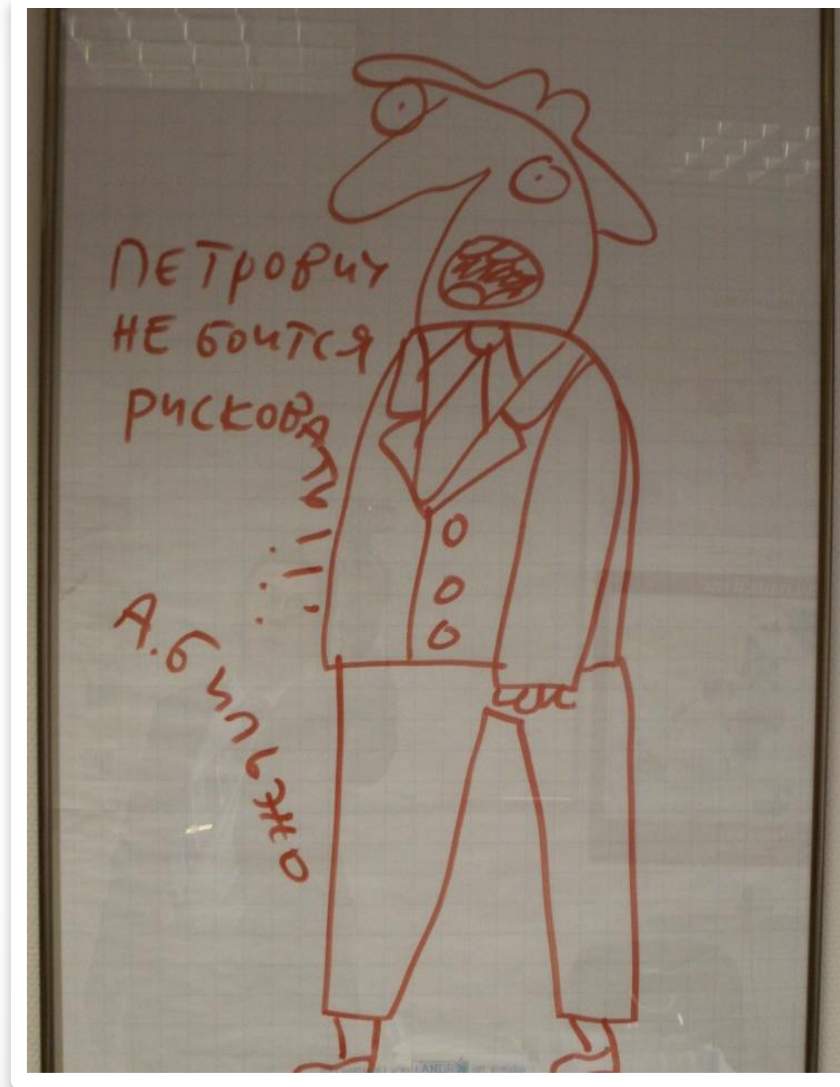 ПЕТРОВИЧ
НЕ БОИТСЯ
РИСКОВАТЬ!!!
А. БИЛЬЖО